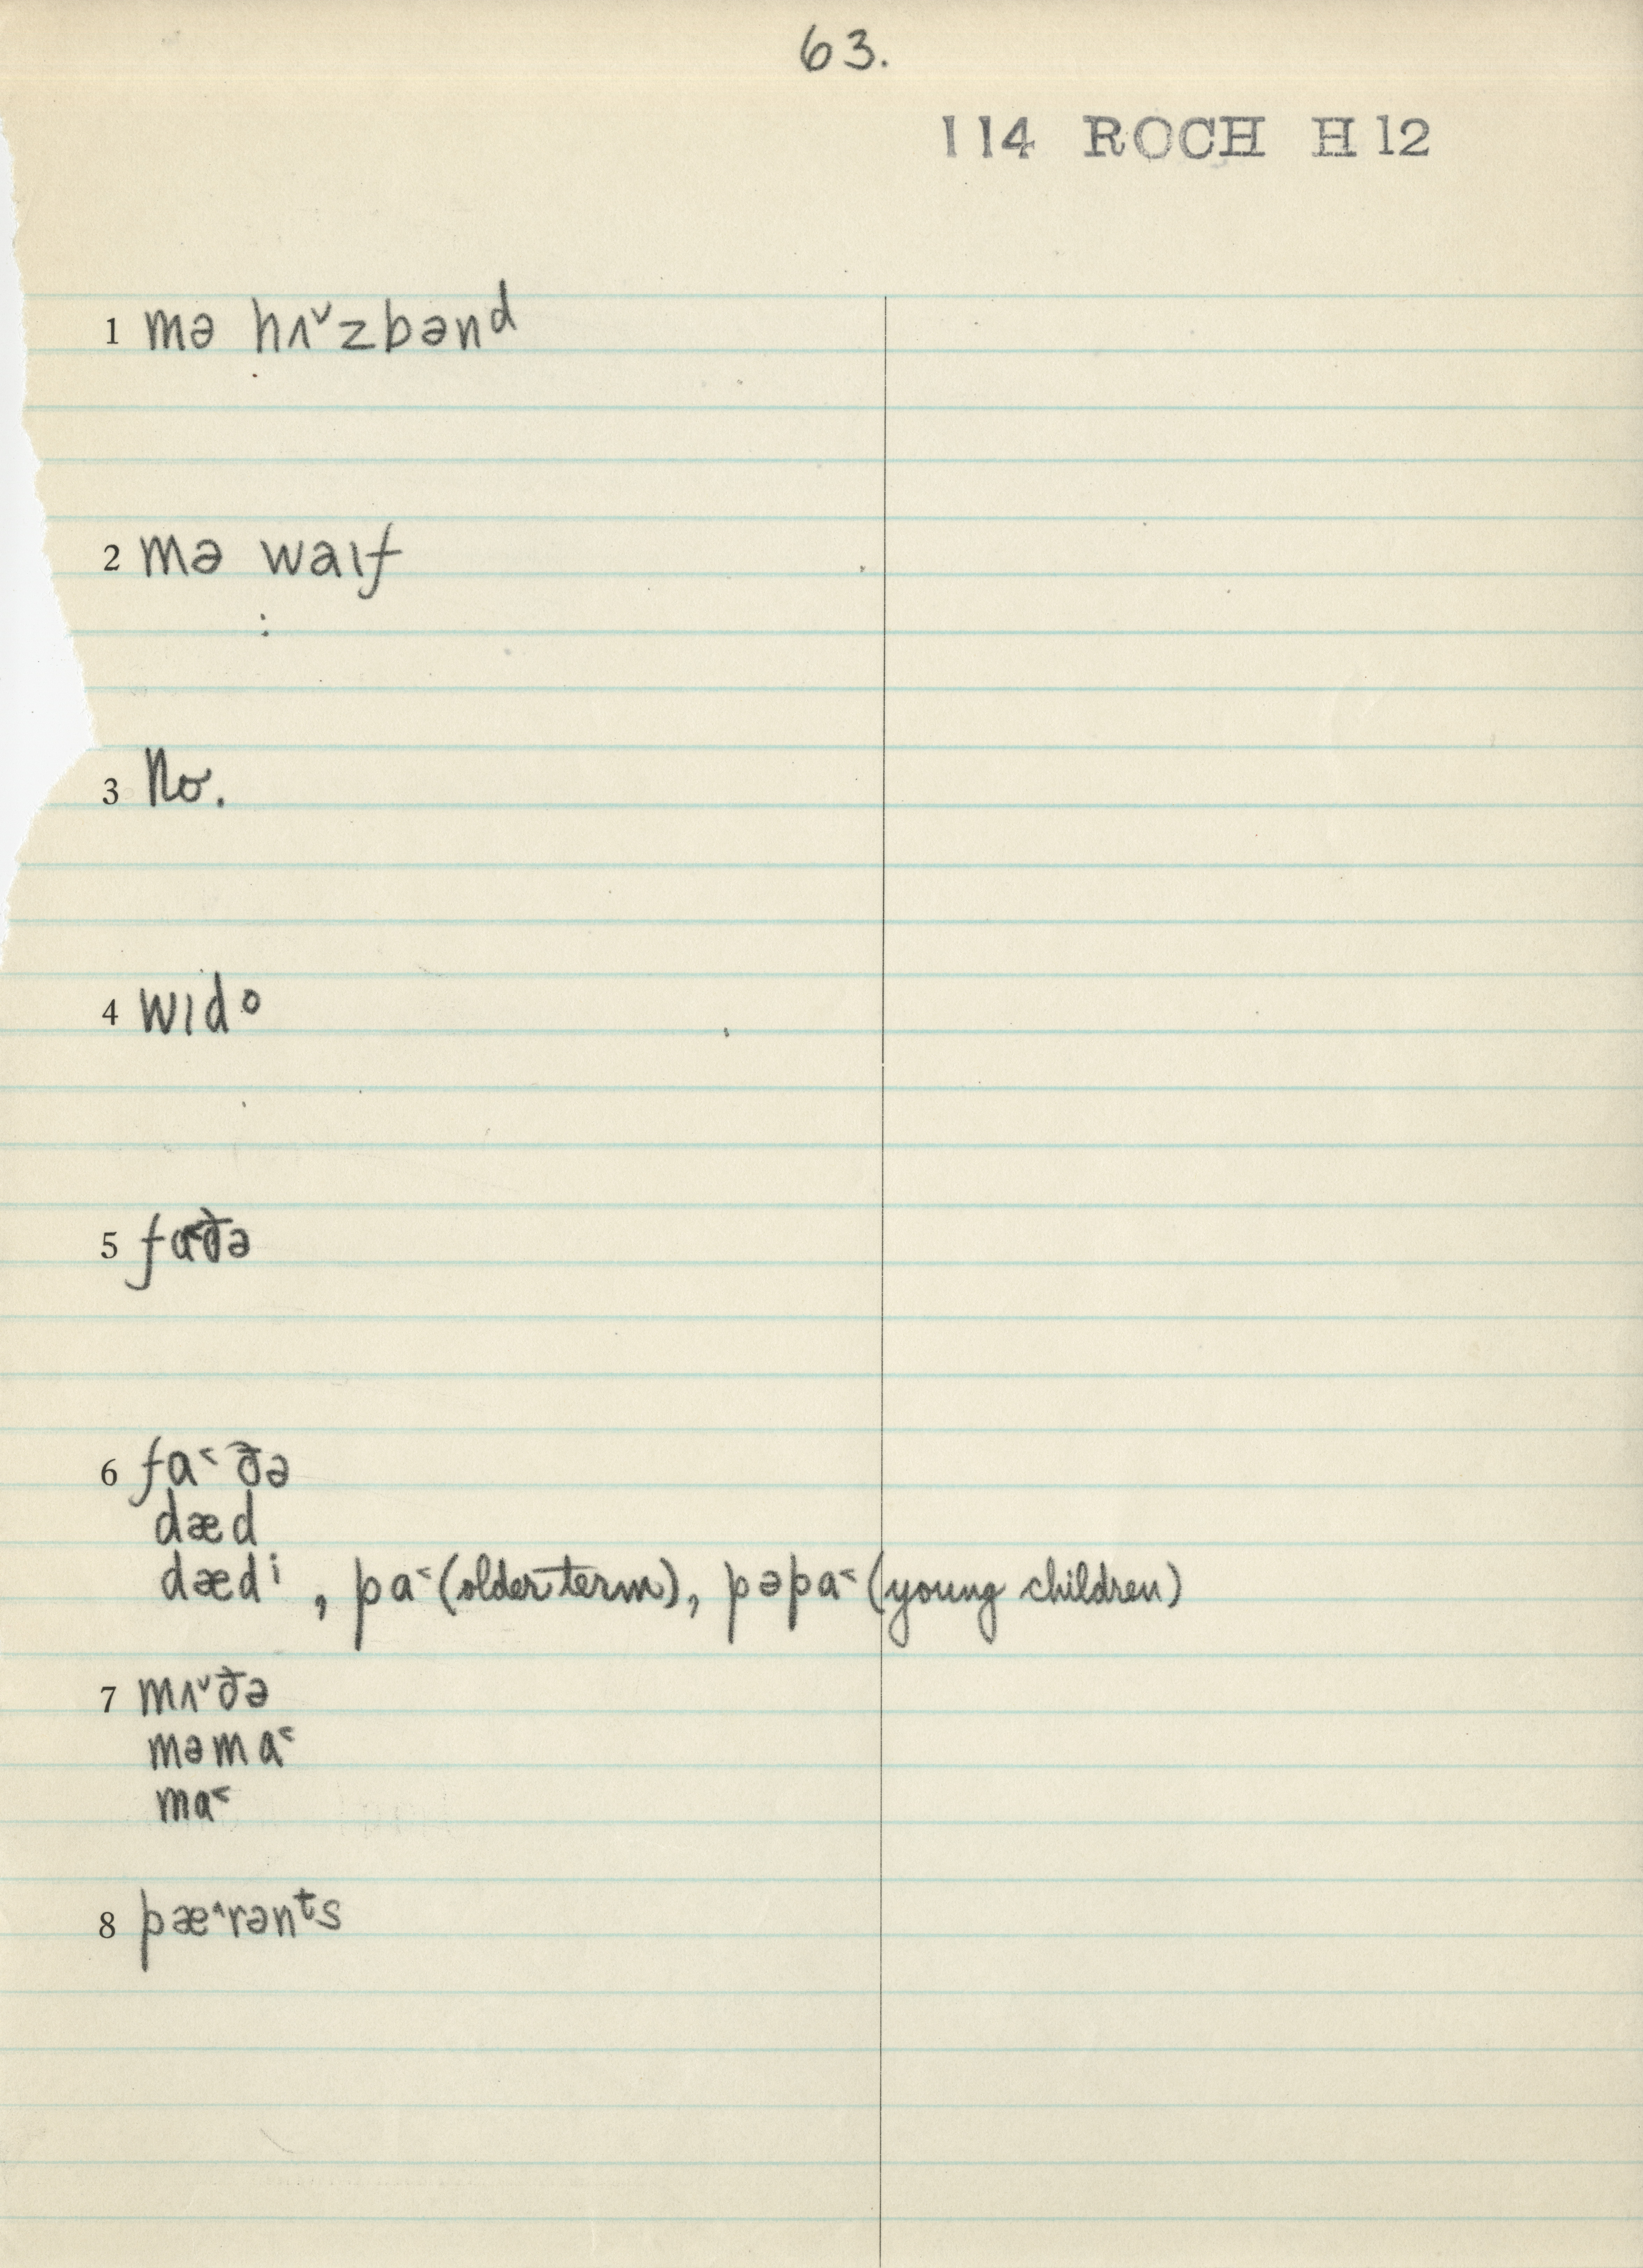 63.
114 ROCH H12
1 mə hʌ˅zbənᵈ
2 mə waɪf
3 No.
4 wɪdᵒ
5 fɑ˂ðə
6 fɑ˂ðə
dæd
dædⁱ, pɑ˂ (older term), pəpɑ˂ (young children)
7 mʌ˅ðə
məmɑ˂
mɑ˂
8 pæ˄rənᵗs